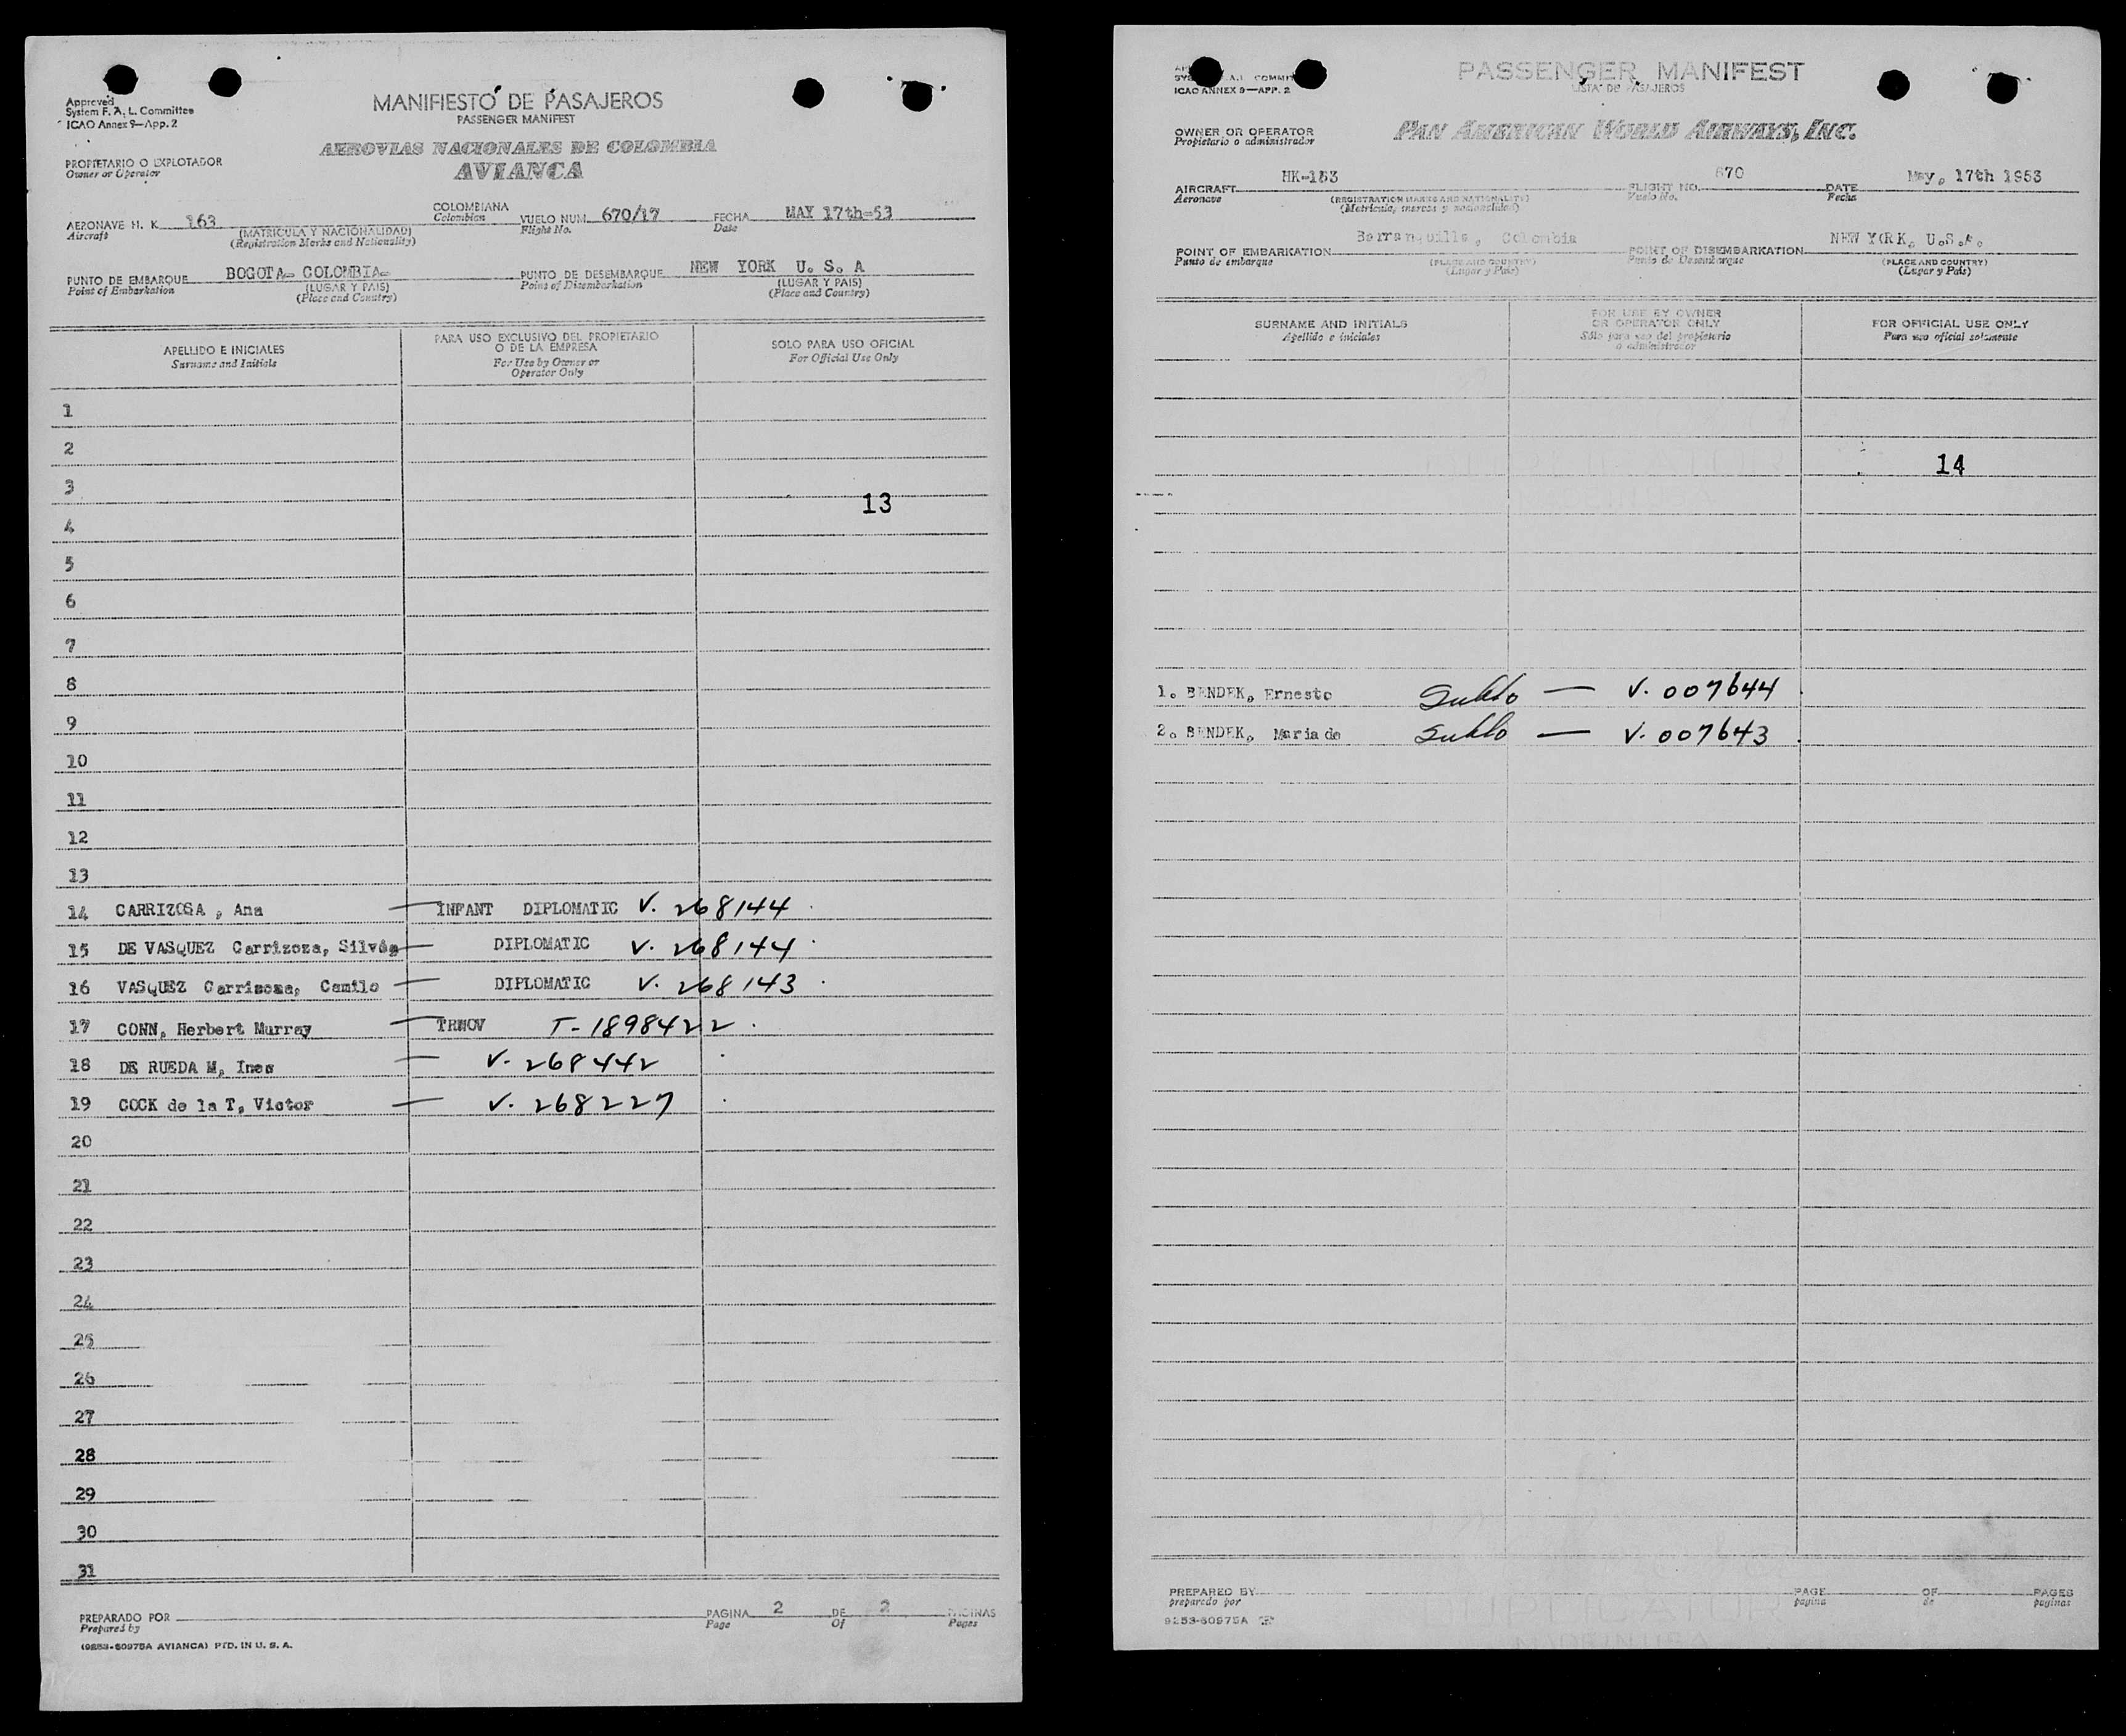 Approved
System F. A. L. Committee
ICAO Annex 9—App. 2
MANIFIESTO DE PASAJEROS
PASSENGER MANIFEST
AEROVIAS NACIONALES DE COLOMBIA
AVIANCA
PROPIETARIO O EXPLOTADOR
Owner or Operator
AERONAVE H. K. 163 COLOMBIANA VUELO NUM. 670/17 FECHA MAY 17th-53
Aircraft (MATRICULA Y NACIONALIDAD) Colombian Flight No. Date
(Registration Marks and Nationality)
PUNTO DE EMBARQUE BOGOTA- COLOMBIA- PUNTO DE DESEMBARQUE NEW YORK U. S. A
Point of Embarkation (LUGAR Y PAIS) Point of Disembarkation (LUGAR Y PAIS)
(Place and Country) (Place and Country)
APELLIDO E INICIALES PARA USO EXCLUSIVO DEL PROPIETARIO O DE LA EMPRESA SOLO PARA USO OFICIAL
Surname and Initials For Use by Owner or Operator Only For Official Use Only
1
2
3
13
4
5
6
7
8
9
10
11
12
13
14 CARRIZOSA , Ana — INFANT DIPLOMATIC V. 268144
15 DE VASQUEZ Carrizoza, — DIPLOMATIC V. 268144
16 VASQUEZ Carrizoza, Camilo — DIPLOMATIC V. 268143
17 CONN, Herbert Murray — TRNOV T-1898422
18 DE RUEDA M, Ines — V. 268442
19 COCK de la T, Victor — V. 268227
20
21
22
23
24
25
26
27
28
29
30
31
PREPARADO POR PAGINA 2 DE 2 PAGINAS
Prepared by Page Of Pages
(9253-60975A AVIANCA) PTD. IN U. S. A.
A.L. COMMIT
ICAO ANNEX 9—APP. 2
PASSENGER MANIFEST
LISTA DE PASAJEROS
OWNER OR OPERATOR
Propietario o administrador
PAN AMERICAN WORLD AIRWAYS, INC.
AIRCRAFT HK-163 FLIGHT NO. 670 DATE May, 17th 1953
Aeronave (REGISTRATION MARKS AND NATIONALITY) Vuelo No. Fecha
(Matricula, marcas y nacionalidad)
POINT OF EMBARKATION Barranquilla, Colombia POINT OF DISEMBARKATION NEW YORK, U.S.A.
Punto de embarque (PLACE AND COUNTRY) Punto de Desembarque (PLACE AND COUNTRY)
(Lugar y País) (Lugar y País)
SURNAME AND INITIALS FOR USE BY OWNER OR OPERATOR ONLY FOR OFFICIAL USE ONLY
Apellido e iniciales Sólo para uso del propietario o administrador Para uso oficial solamente
14
1. BENDEK, Ernesto — V. 007644
2. BENDEK, Maria de — V. 007643
PREPARED BY PAGE OF PAGES
preparado por pagina de paginas
9253-60975A